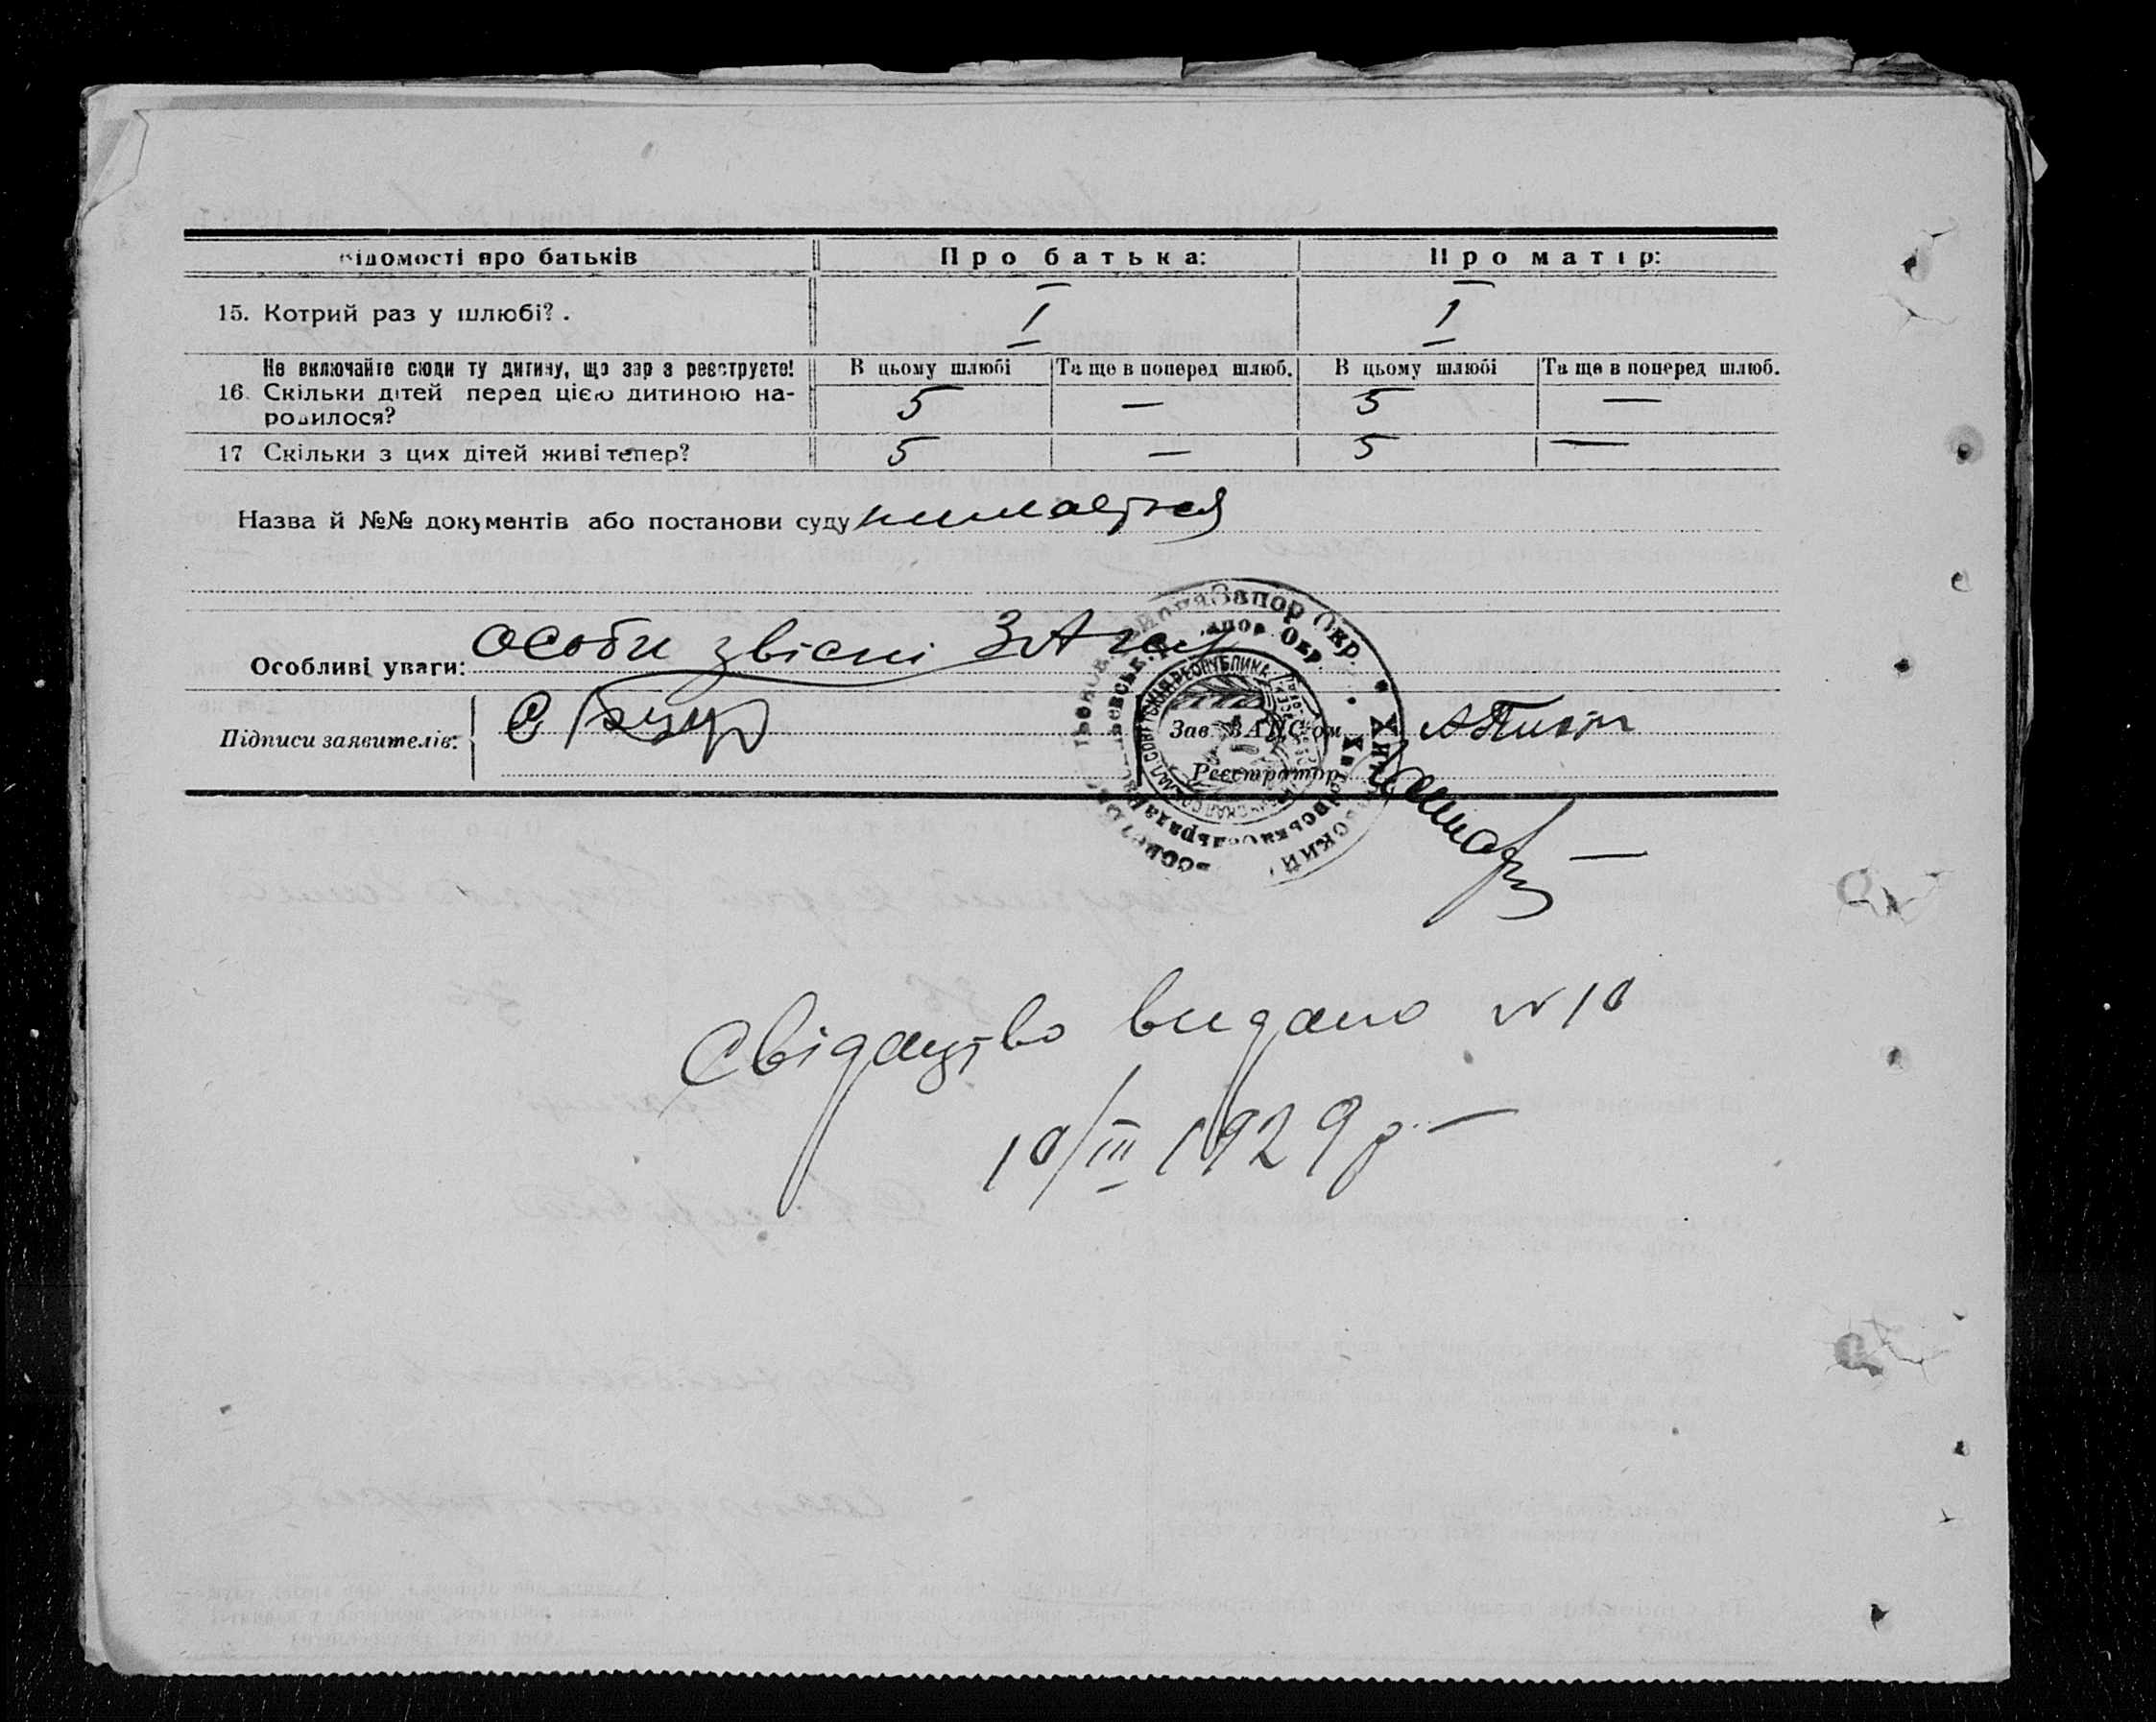 відомості про батьків Про батька: Про матір:
15. Котрий раз у шлюбі? . I I
Не включайте сюди ту дитину, що зараз реєструєте! В цьому шлюбі Та ще в поперед шлюб. В цьому шлюбі Та ще в поперед шлюб.
16. Скільки дітей перед цією дитиною на-
родилося? 5 — 5 —
17 Скільки з цих дітей живі тепер? 5 — 5 —
Назва й №№ документів або постанови суду
Особливі уваги: особи звісні ЗАгсу
Підписи заявителів:
Запор Окр.
Запор. Окр.
Зав. ЗАГС'ом
Реєстратор
Свідоцтво видано № 10
10/III 1929 р. —